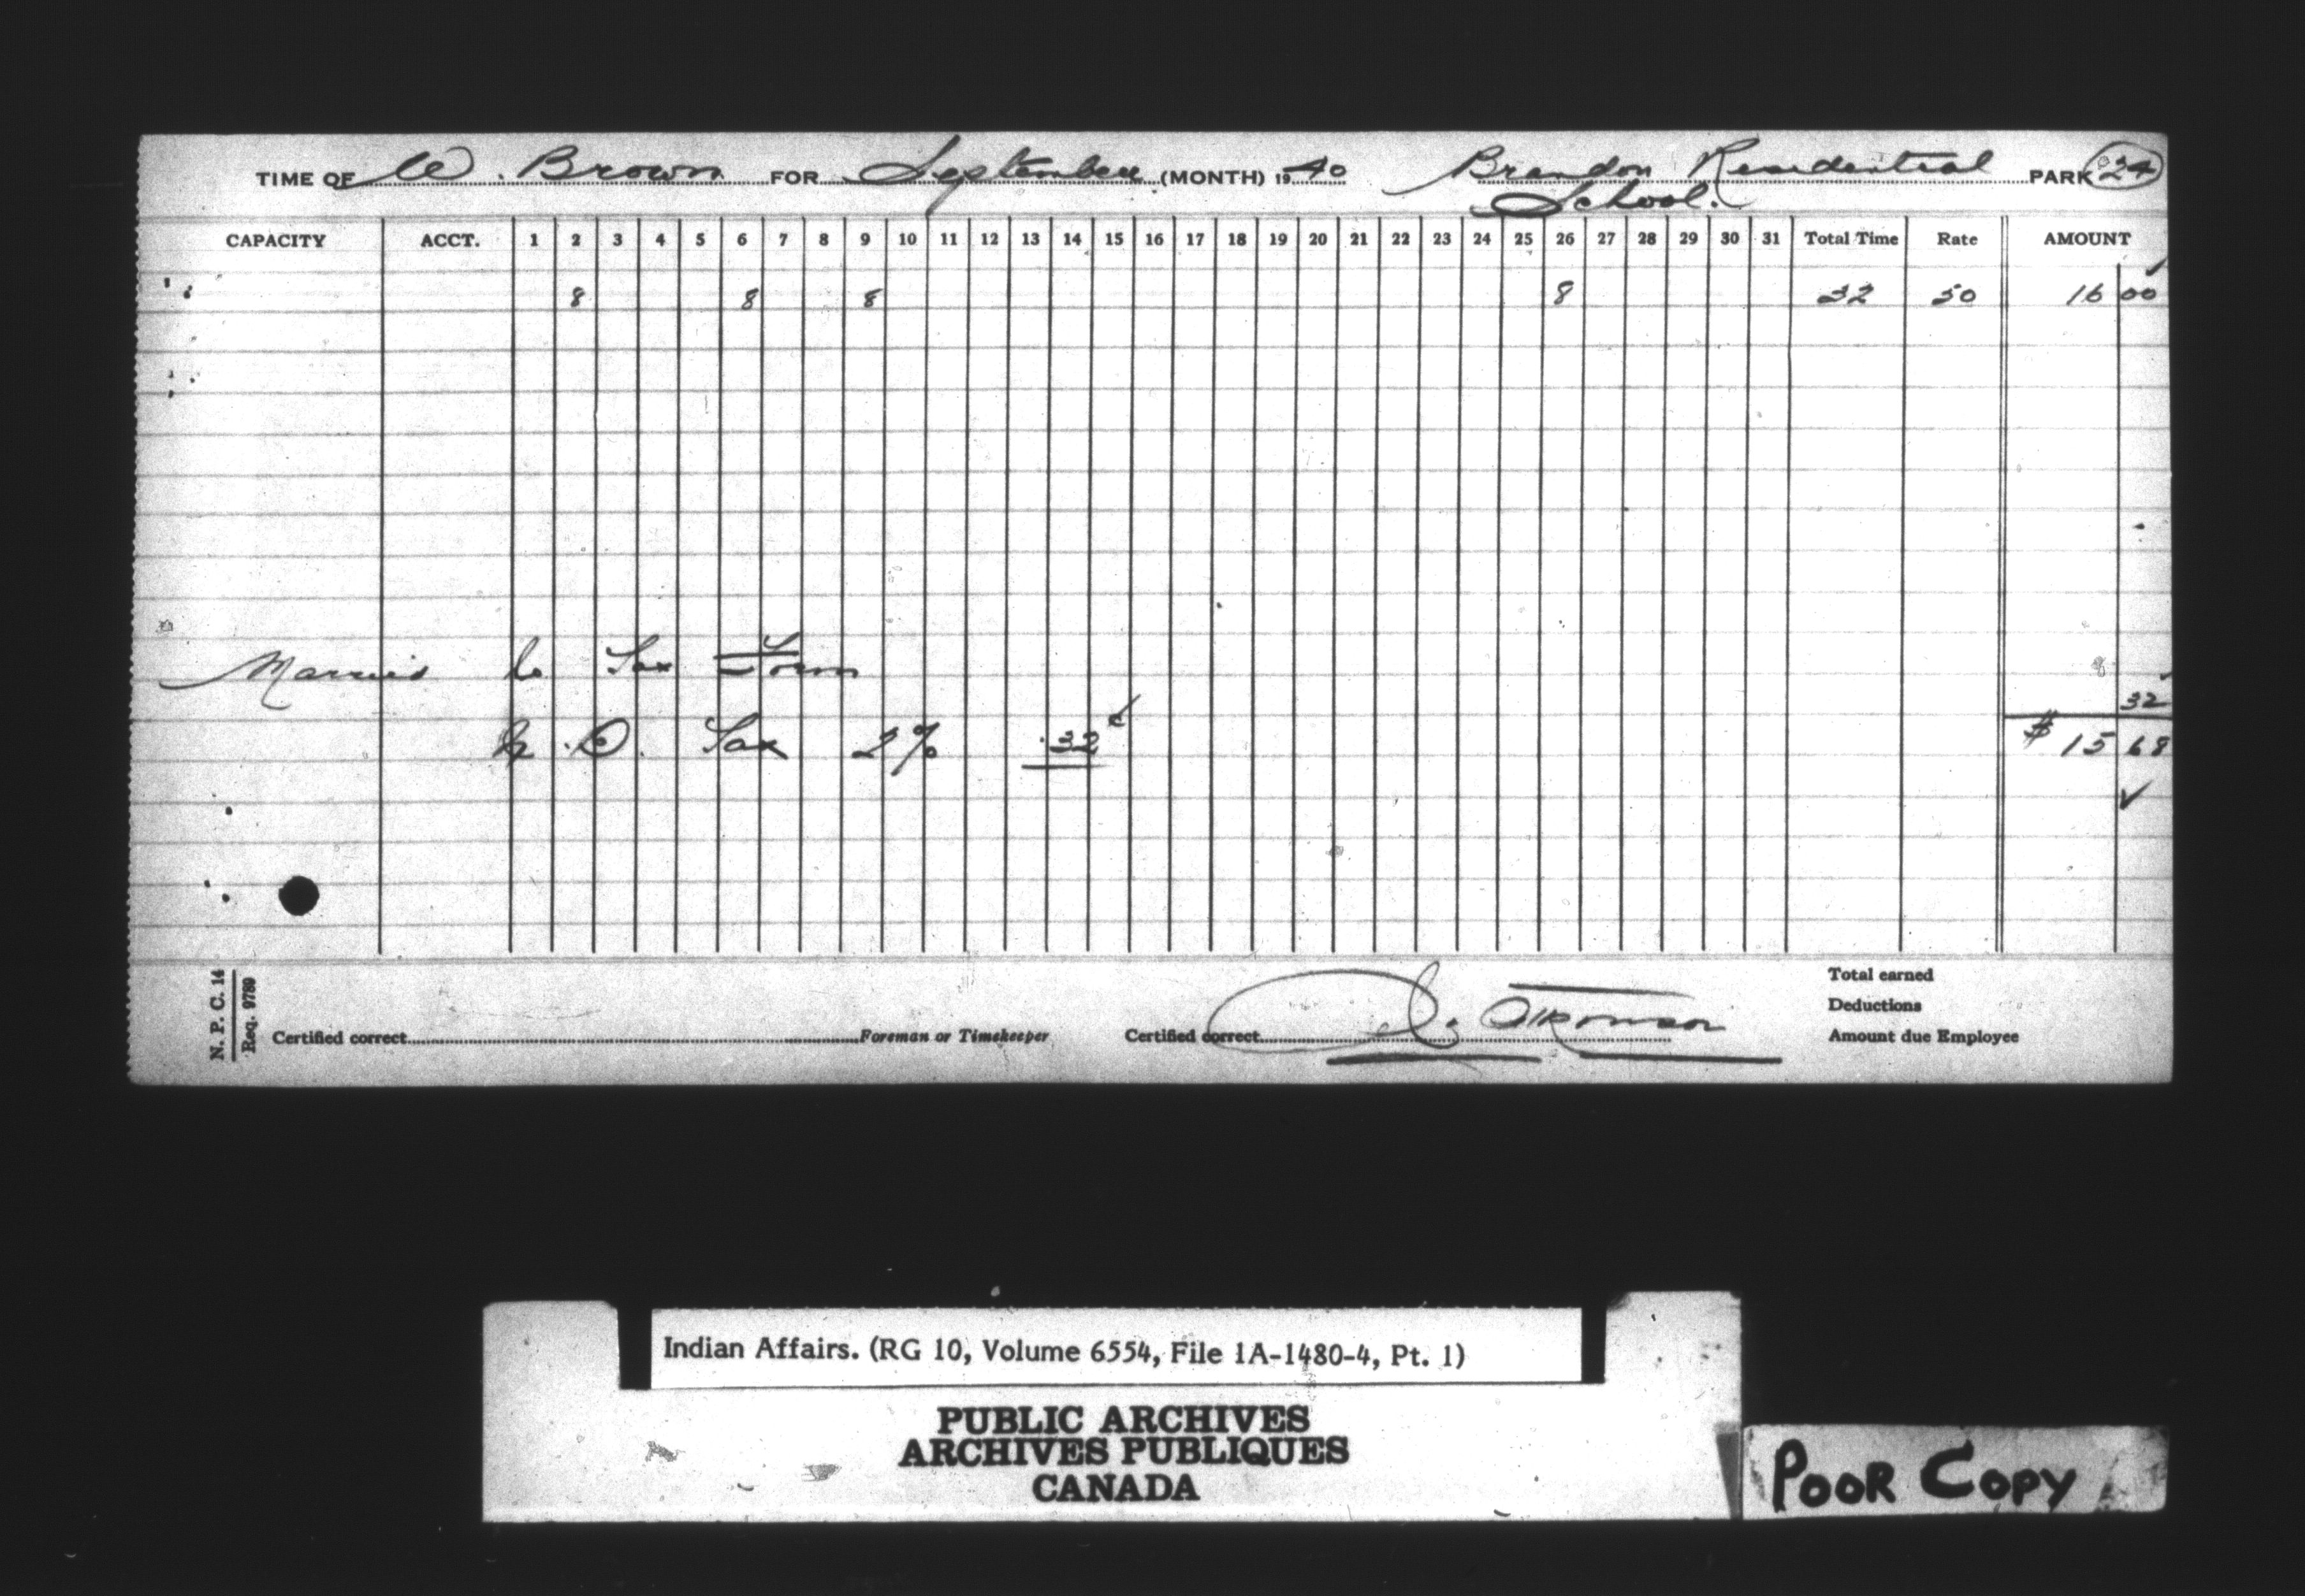 TIME OF W. Brown FOR September (MONTH) 1940 Brandon Residential PARK 24
School.
CAPACITY ACCT. 1 2 3 4 5 6 7 8 9 10 11 12 13 14 15 16 17 18 19 20 21 22 23 24 25 26 27 28 29 30 31 Total Time Rate AMOUNT
8 8 8 8 32 50 16 00
Married Tax Form
32
N.D. Tax 2% .32 $ 15 68
N. P. C. 14
Req. 9789
Total earned
Deductions
Certified correct Foreman or Timekeeper Certified correct Atkinson Amount due Employee
Indian Affairs. (RG 10, Volume 6554, File 1A-1480-4, Pt. 1)
PUBLIC ARCHIVES
ARCHIVES PUBLIQUES
CANADA
POOR COPY